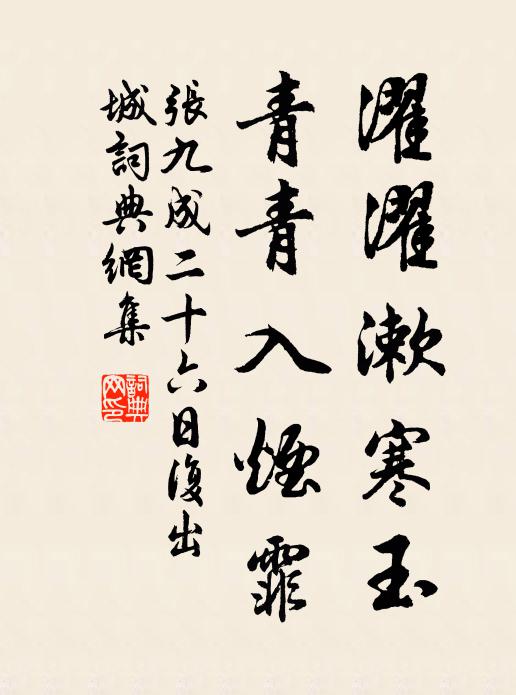 濯濯漱寒玉
青青入煙霏
張九成二十六日復出
城詞典網集
詞典
网印